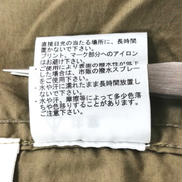 直接日光の当たる場所に、長時間
置かないで下さい。
プリント、マーク部分へのアイロン
はお避け下さい。
ご使用により表面の撥水性が低下
した場合は、市販の撥水スプレー
をご使用下さい。
水や汗に濡れたまま長時間放置し
ないで下さい。
水や汗、摩擦等によって多少色落
ちや色移りすることがあります。
ご注意下さい。